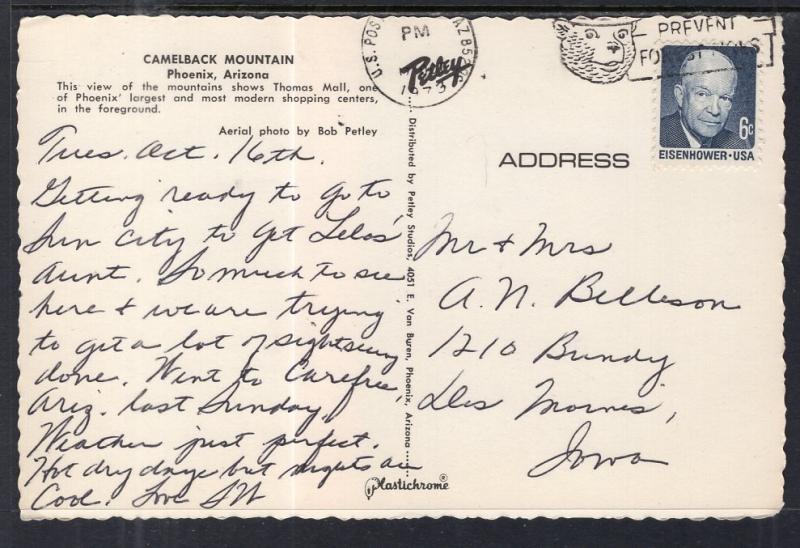 CAMELBACK MOUNTAIN
Phoenix, Arizona
This view of the mountains shows Thomas Mall, one
of Phoenix' largest and most modern shopping centers,
in the foreground.
Aerial photo by Bob Petley
Tues. Oct. 16th.
Getting ready to go to
Sun City to get Lelos'
aunt. So much to see
here & we are trying
to get a lot of sightseeing
done. Went to Carefree,
Ariz. last Sunday.
Weather just perfect.
Hot dry days but nights are
Cool. Love
Distributed by Petley Studios, 4051 E. Van Buren, Phoenix, Arizona
Plastichrome®
U.S. POS
AZ 85
PM
Petley
1973
PREVENT
FOREST
6c
EISENHOWER · USA
ADDRESS
Mr & Mrs
A. N. Belleson
1210 Bundy
Des Moines,
Iowa